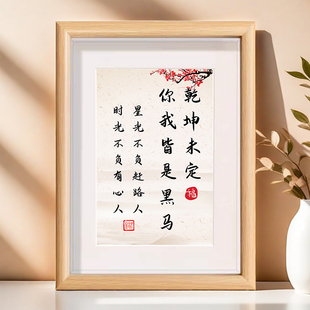 乾坤未定
你我皆是黑马
星光不负赶路人
时光不负有心人